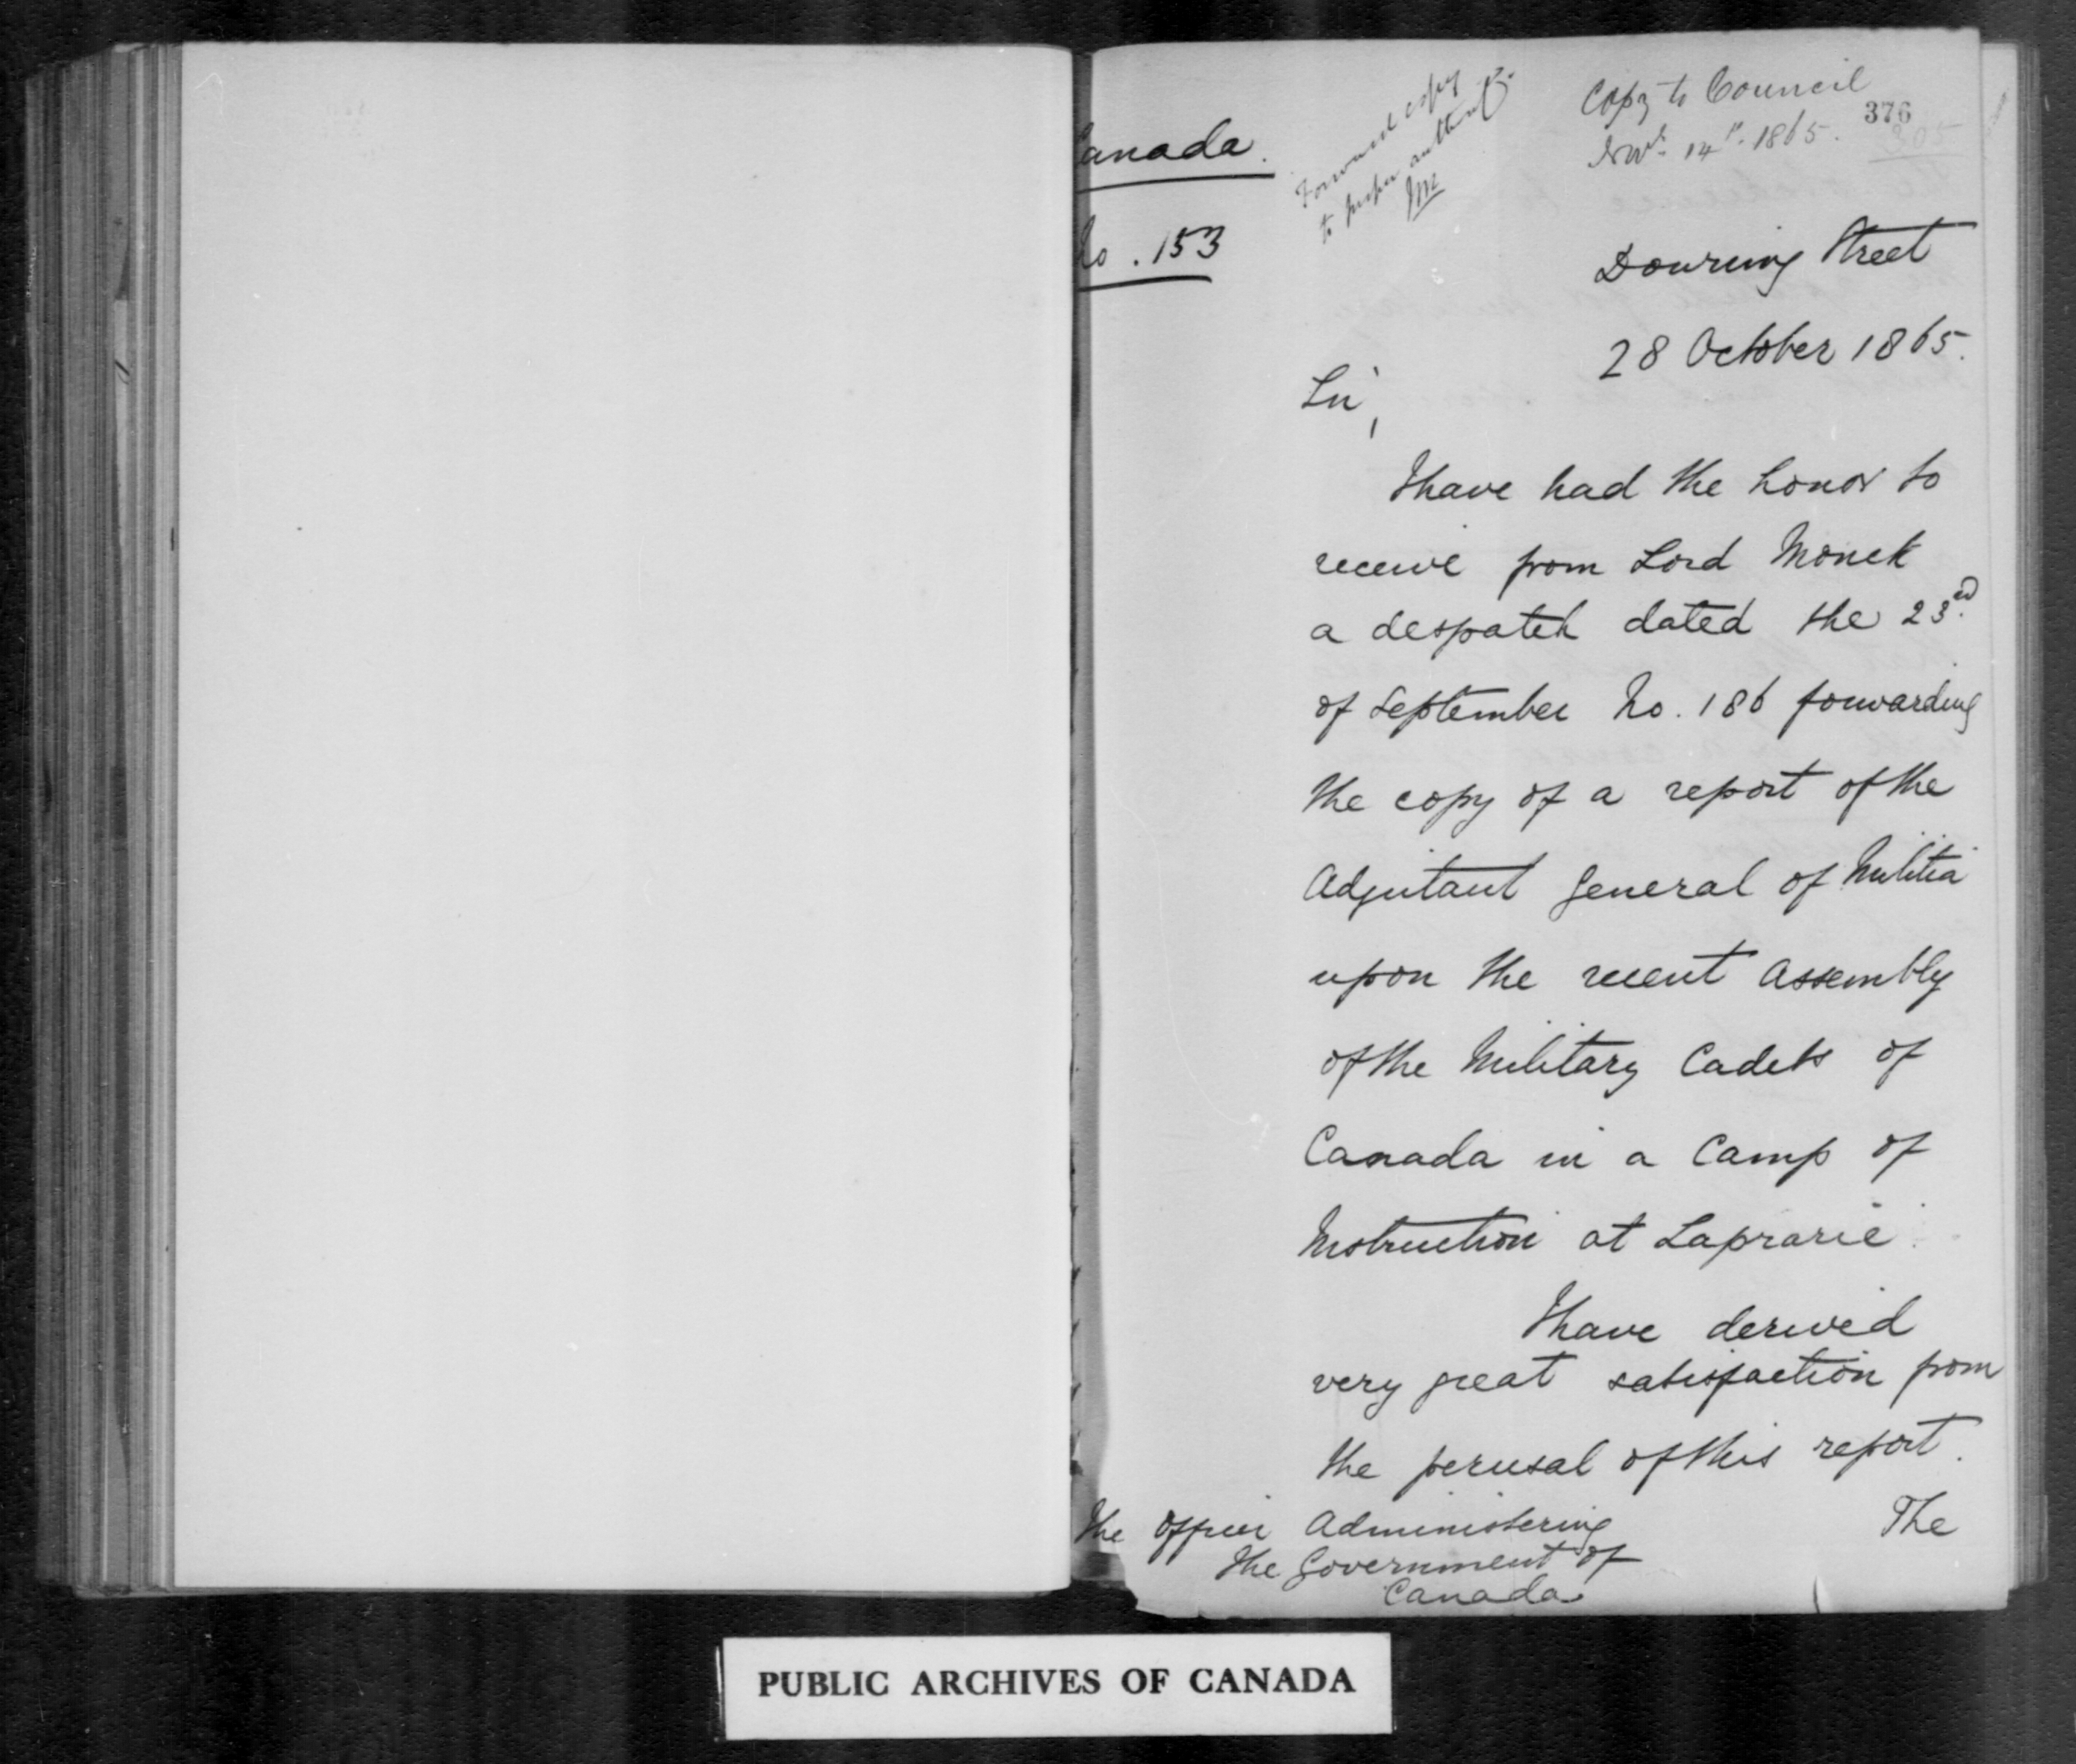 Canada.
No. 153
Forward copy
to proper authority
M
Copy to Council
Novr. 14th. 1865.
376
Downing Street
28 October 1865.
Sir,
I have had the honor to
receive from Lord Monck
a despatch dated the 23rd.
of September No. 186 forwarding
the copy of a report of the
Adjutant General of Militia
upon the recent Assembly
of the Military Cadets of
Canada in a Camp of
Instruction at Laprarie.
I have derived
very great satisfaction from
the perusal of this report.
The
The Officer Administering
the Government of
Canada
PUBLIC ARCHIVES OF CANADA